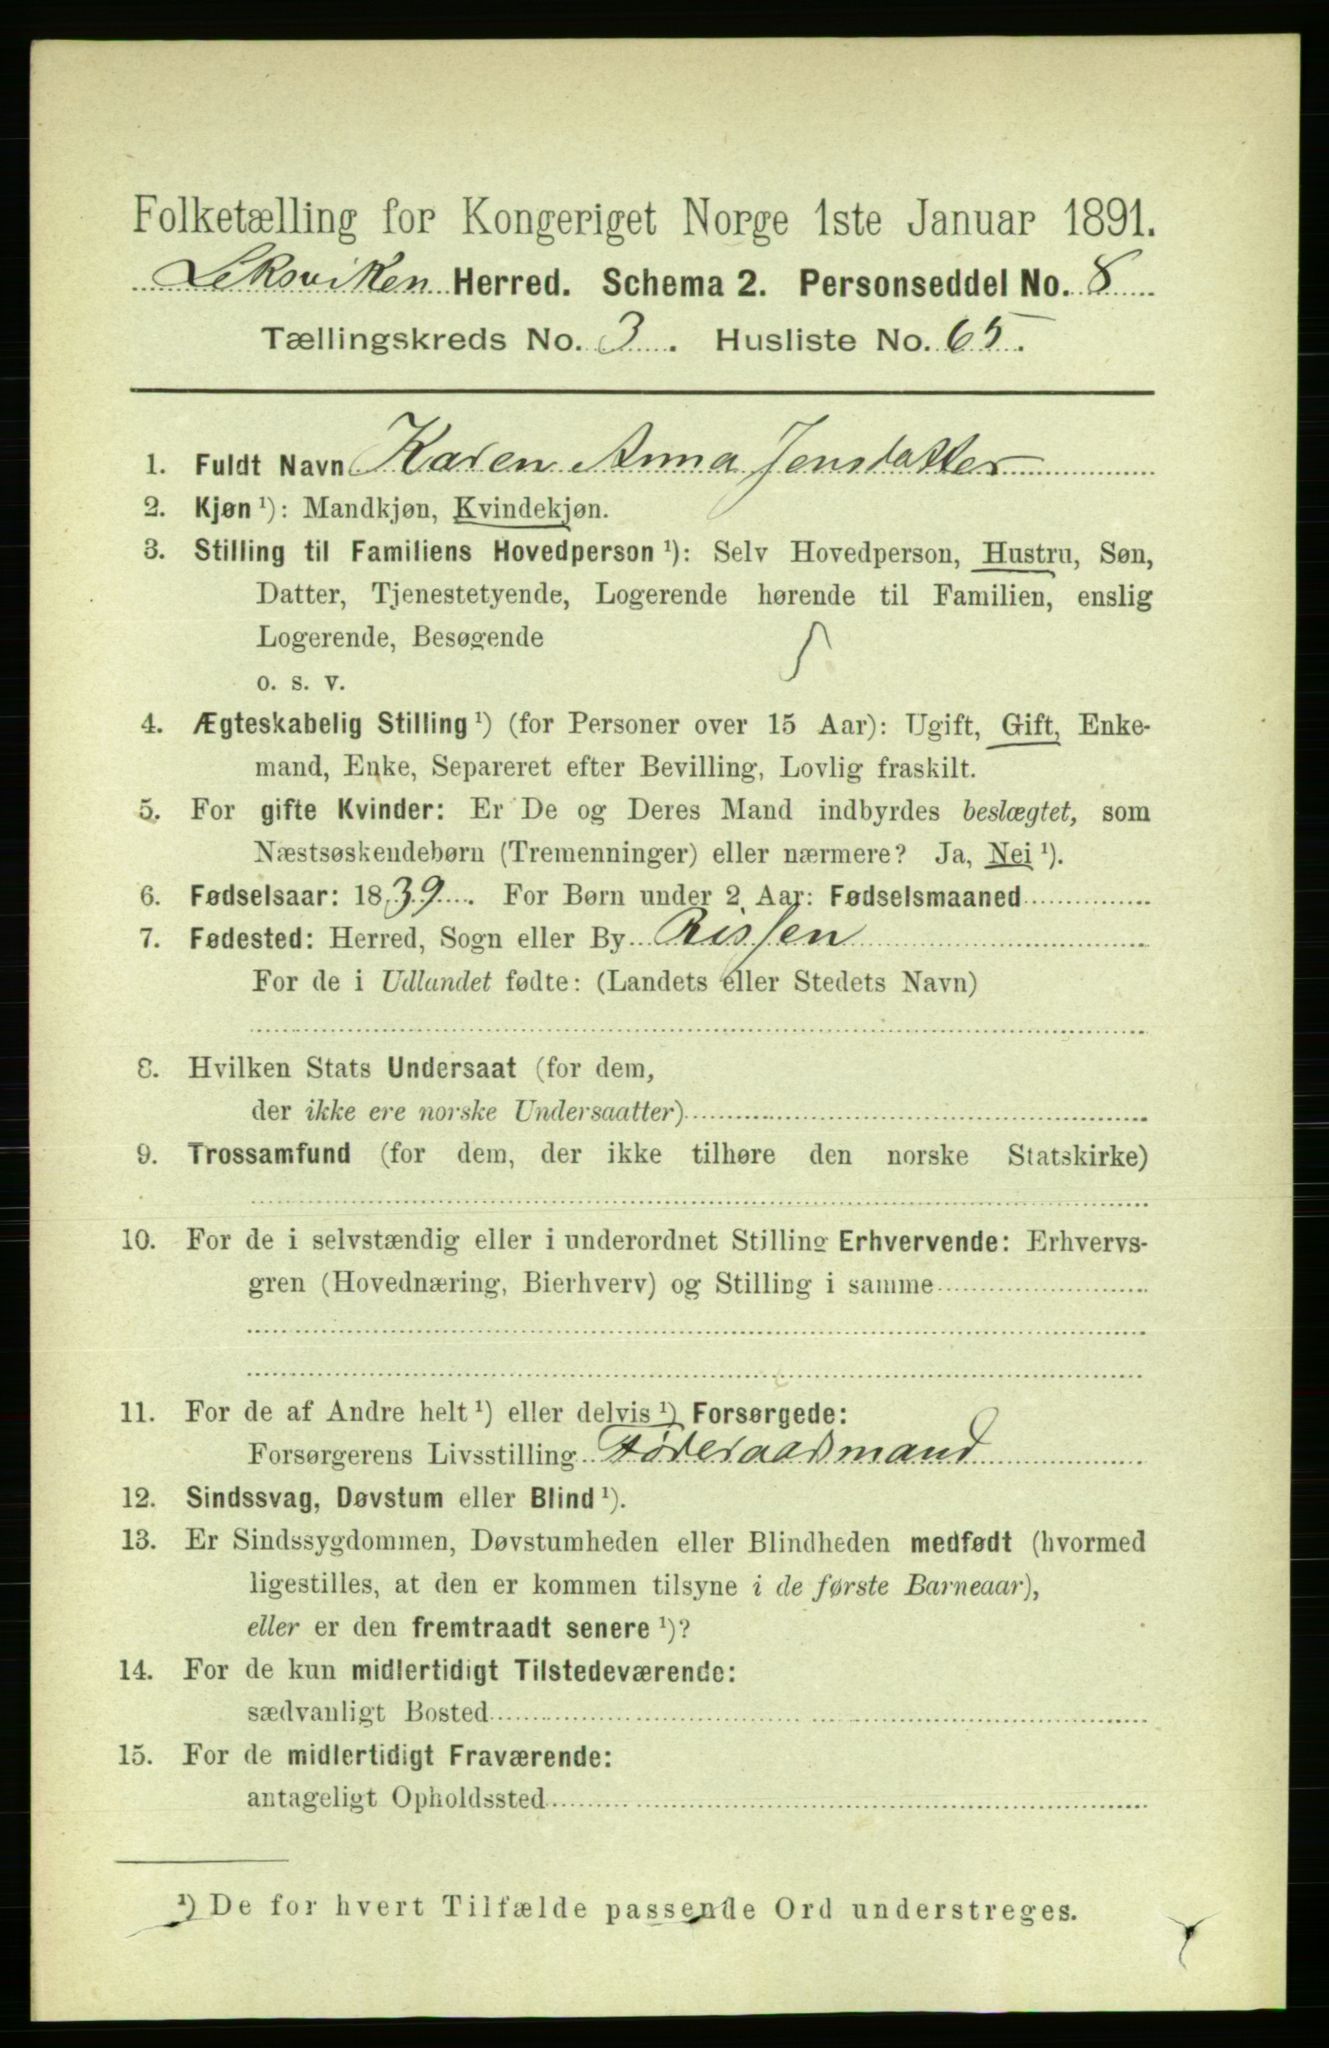 Folketælling for Kongeriget Norge 1ste Januar 1891.
Leksviken Herred. Schema 2. Personseddel No. 8
Tællingskreds No. 3. Husliste No. 65.
1. Fuldt Navn Karen Anna Jensdatter
2. Kjøn ¹): Mandkjøn, Kvindekjøn.
3. Stilling til Familiens Hovedperson ¹): Selv Hovedperson, Hustru, Søn,
Datter, Tjenestetyende, Logerende hørende til Familien, enslig
Logerende, Besøgende
o. s. v.
4. Ægteskabelig Stilling ¹) (for Personer over 15 Aar): Ugift, Gift, Enke-
mand, Enke, Separeret efter Bevilling, Lovlig fraskilt.
5. For gifte Kvinder: Er De og Deres Mand indbyrdes beslægtet, som
Næstsøskendebørn (Tremenninger) eller nærmere? Ja, Nei ¹).
6. Fødselsaar: 1839. For Børn under 2 Aar: Fødselsmaaned
7. Fødested: Herred, Sogn eller By Rissen
For de i Udlandet fødte: (Landets eller Stedets Navn)
8. Hvilken Stats Undersaat (for dem,
der ikke ere norske Undersaatter)
9. Trossamfund (for dem, der ikke tilhøre den norske Statskirke)
10. For de i selvstændig eller i underordnet Stilling Erhvervende: Erhvervs-
gren (Hovednæring, Bierhverv) og Stilling i samme
11. For de af Andre helt ¹) eller delvis ¹) Forsørgede:
Forsørgerens Livsstilling Føderaadsmand
12. Sindssvag, Døvstum eller Blind ¹).
13. Er Sindssygdommen, Døvstumheden eller Blindheden medfødt (hvormed
ligestilles, at den er kommen tilsyne i de første Barneaar),
eller er den fremtraadt senere ¹)?
14. For de kun midlertidigt Tilstedeværende:
sædvanligt Bosted
15. For de midlertidigt Fraværende:
antageligt Opholdssted
¹) De for hvert Tilfælde passende Ord understreges.